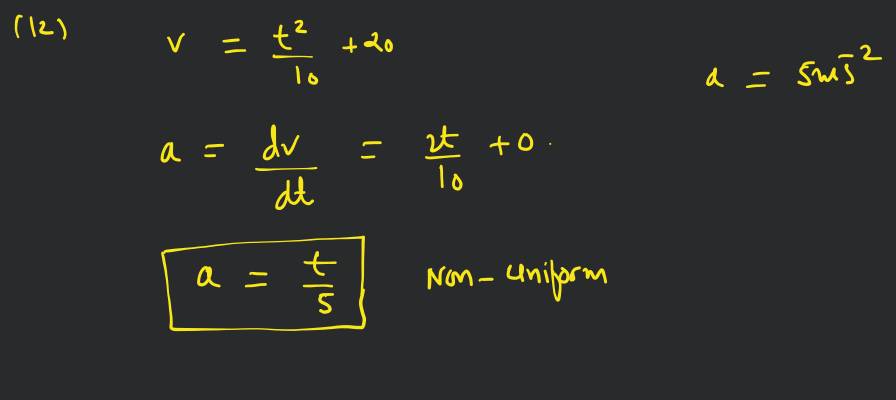 (12)
v = t²/10 + 20
a = 5ms⁻²
a = dv/dt = 2t/10 + 0.
a = t/5 Non-uniform